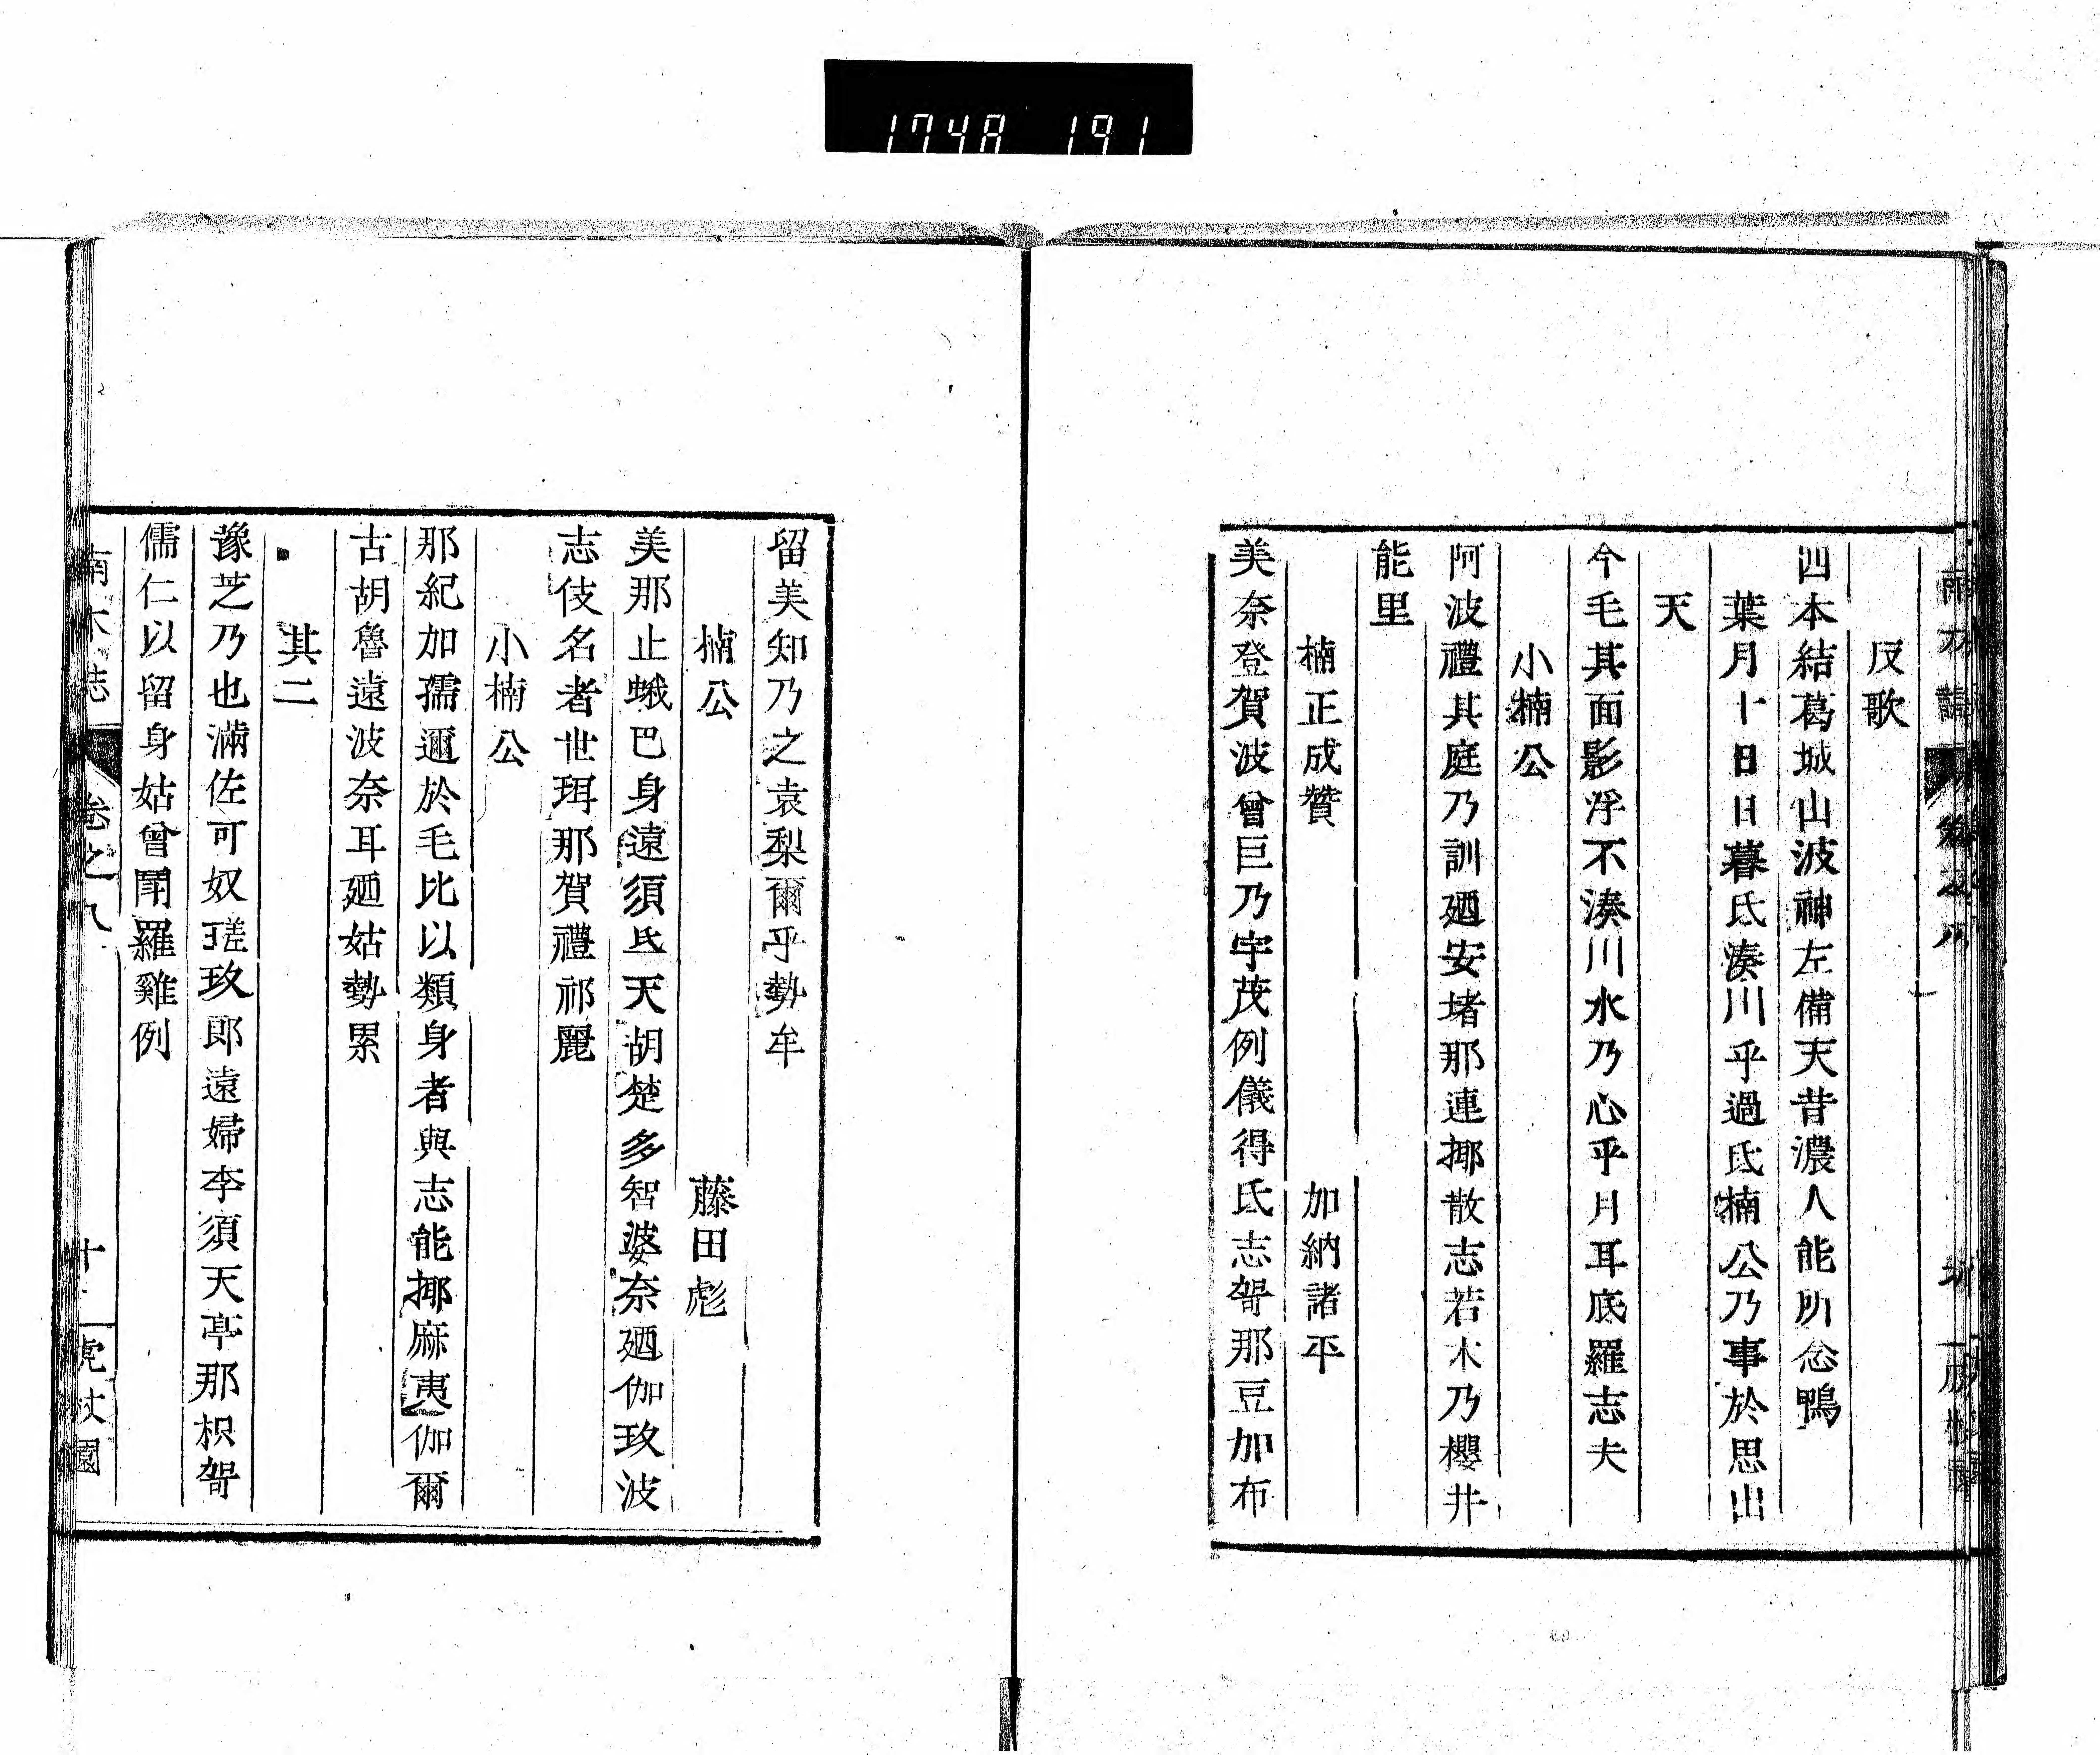 1748 191
反歌
四本結葛城山波神左備天昔濃人能所念鴨
葉月十日日暮氐湊川乎過氐楠公乃事於思出
天
今毛其面影浮不湊川水乃心乎月耳底羅志夫
小楠公
阿波禮其庭乃訓廼安堵那連揶散志若木乃櫻井
能里
楠正成贊 加納諸平
美奈登賀波曾巨乃宇茂例儀得氐志哿那豆加布
留美知乃之袁梨爾乎勢牟
楠公 藤田彪
美那止蛾巴身遠須氐天胡楚多智婆奈廼伽玖波
志伎名者世珥那賀禮祁麗
小楠公
那紀加孺邇於毛比以類身者與志能揶麻夷伽爾
古胡魯遠波奈耳廼姑勢累
其二
豫芝乃也滿佐可奴瑳玖郎遠婦李須天亭那枳哿
儒仁以留身姑曾閇羅雞例
南木誌 卷之八 虎杖園